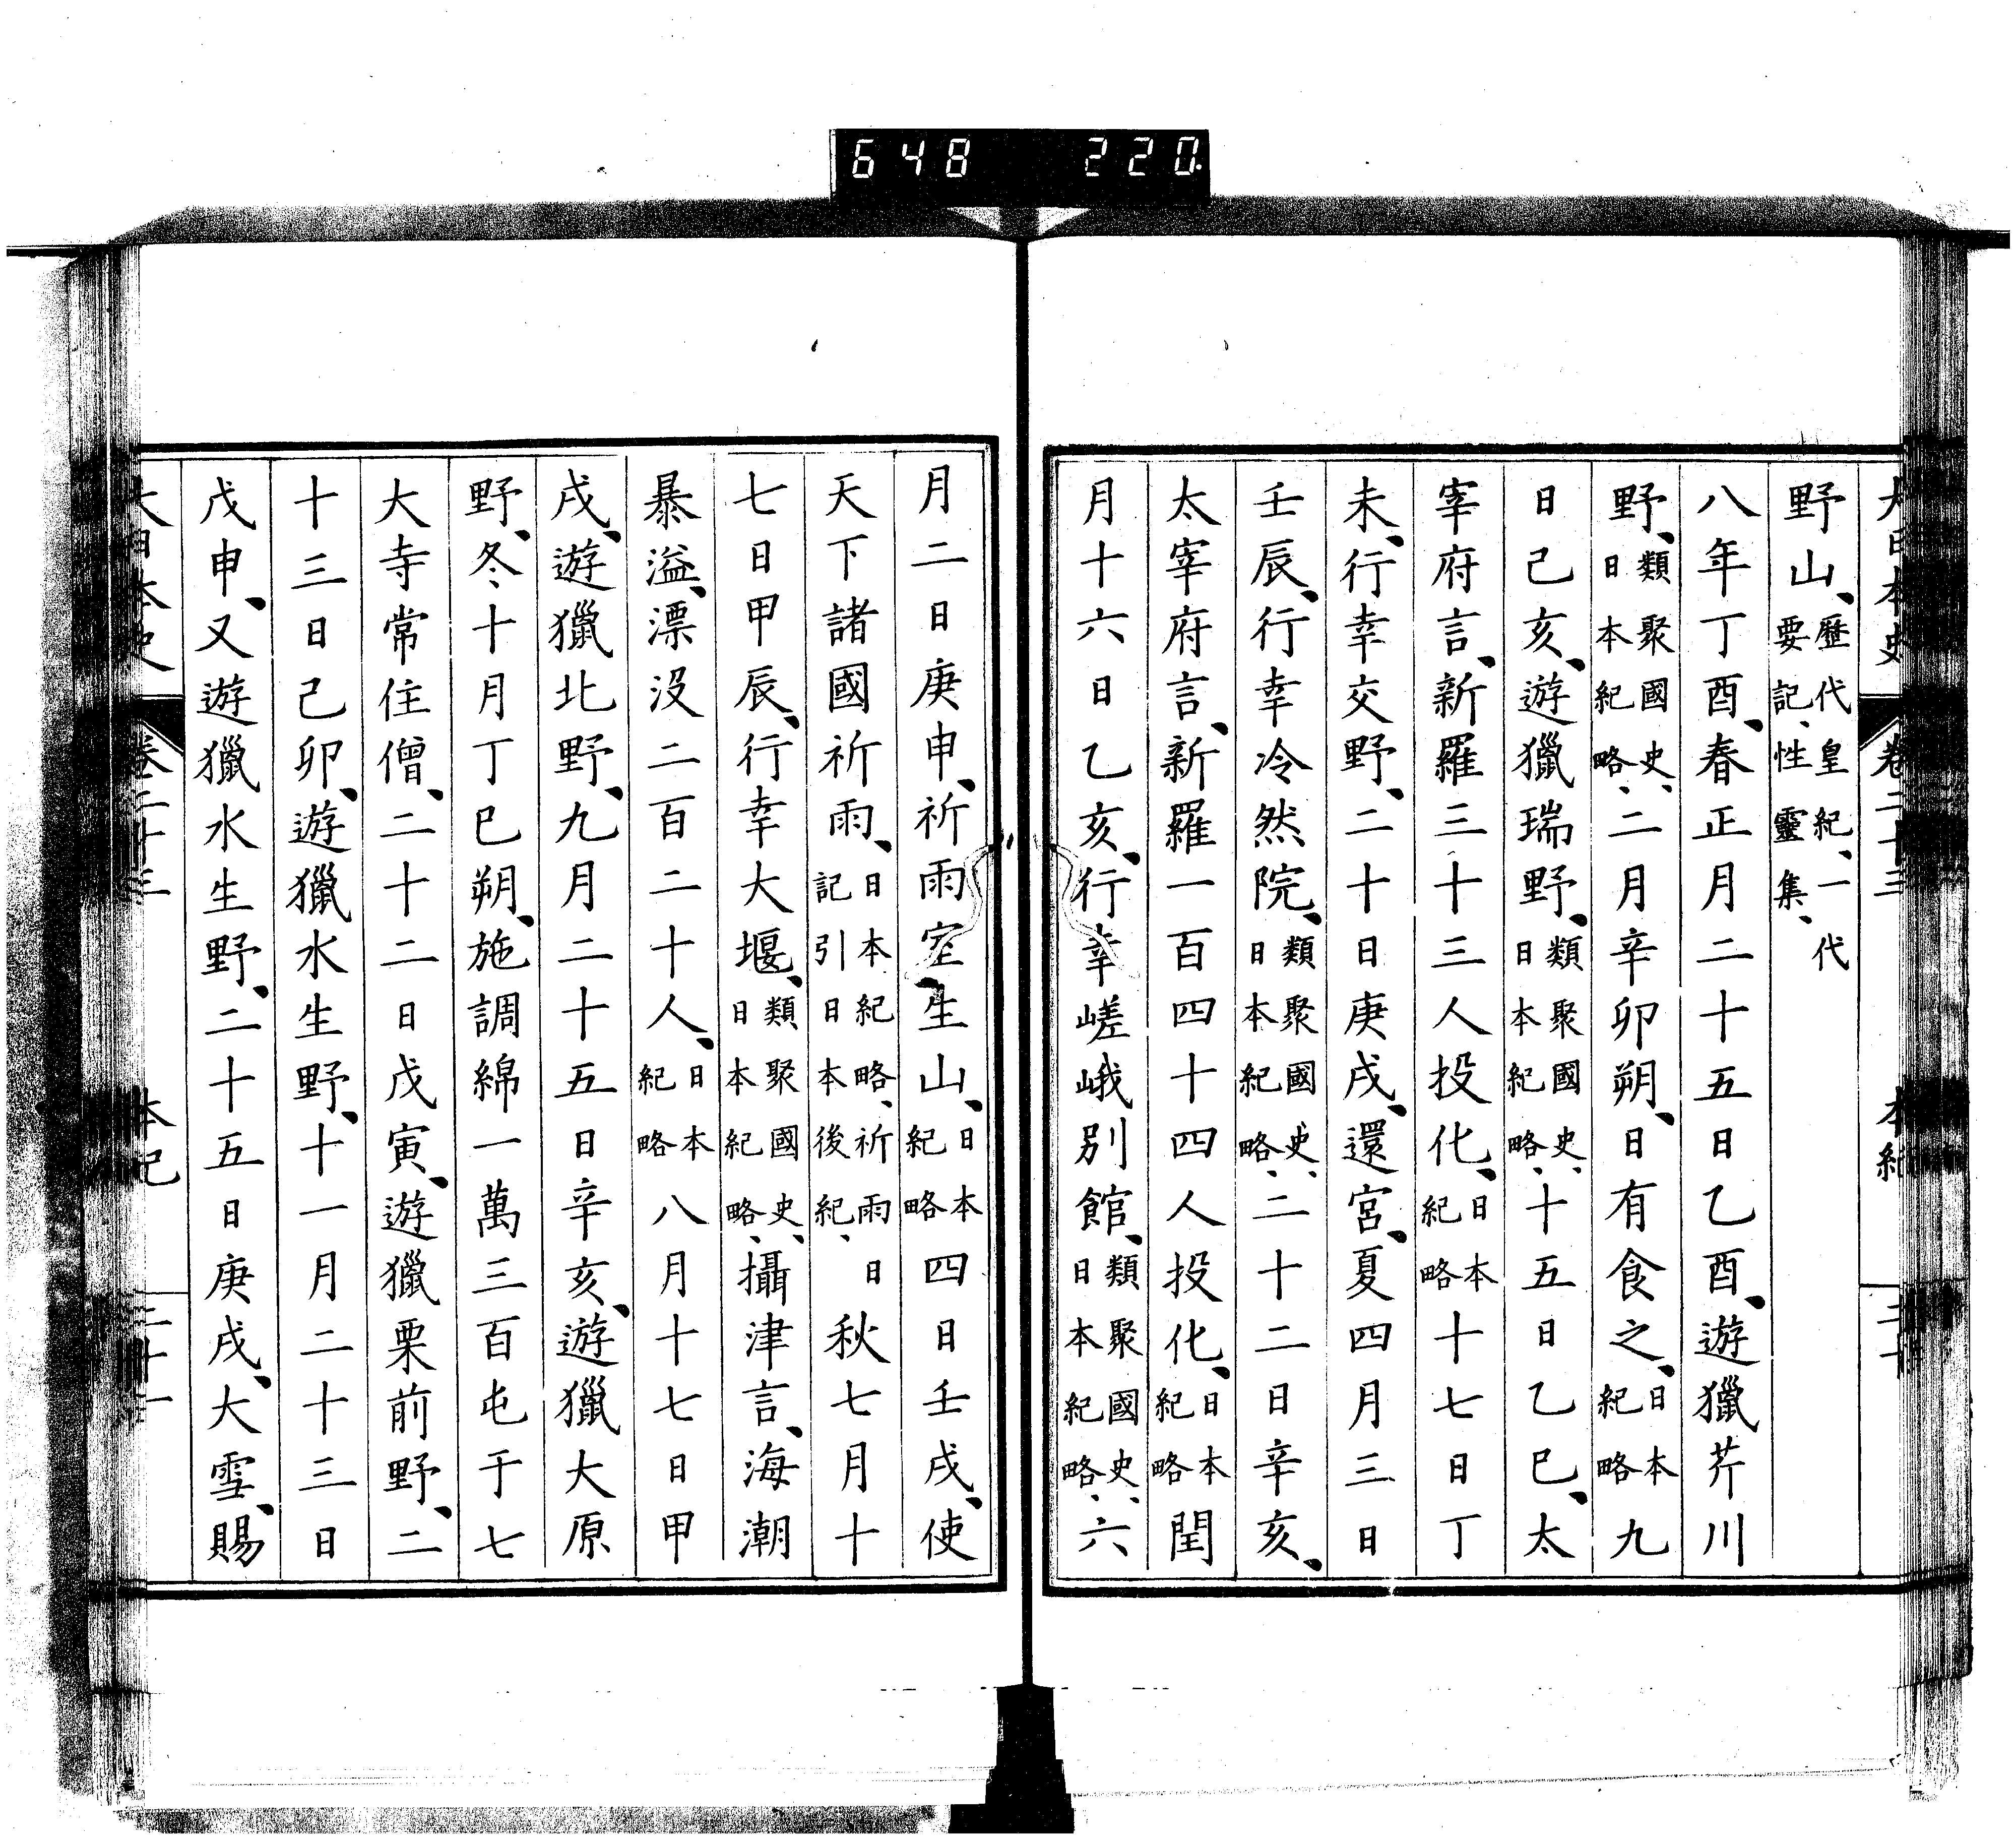 648 220
大日本史 卷二十三 本紀
野山、歷代皇紀、一代要記、性靈集、
八年丁酉、春正月二十五日乙酉、遊獵芹川
野、類聚國史、日本紀略、二月辛卯朔、日有食之、日本紀略九
日己亥、遊獵瑞野、類聚國史、日本紀略、十五日乙巳、太
宰府言、新羅三十三人投化、日本紀略十七日丁
未、行幸交野、二十日庚戌、還宮、夏四月三日
壬辰、行幸冷然院、類聚國史、日本紀略、二十二日辛亥、
太宰府言、新羅一百四十四人投化、日本紀略閏
月十六日乙亥、行幸嵯峨別館、類聚國史、日本紀略、六
月二日庚申、祈雨室生山、日本紀略四日壬戌、使
天下諸國祈雨、日本紀略、祈雨日記引日本後紀、秋七月十
七日甲辰、行幸大堰、類聚國史、日本紀略、攝津言、海潮
暴溢、漂没二百二十人、日本紀略八月十七日甲
戌、遊獵北野、九月二十五日辛亥、遊獵大原
野、冬十月丁巳朔、施調綿一萬三百屯于七
大寺常住僧、二十二日戊寅、遊獵栗前野、二
十三日己卯、遊獵水生野、十一月二十三日
戊申、又遊獵水生野、二十五日庚戌、大雪、賜
大日本史 卷二十三 本紀 二十一